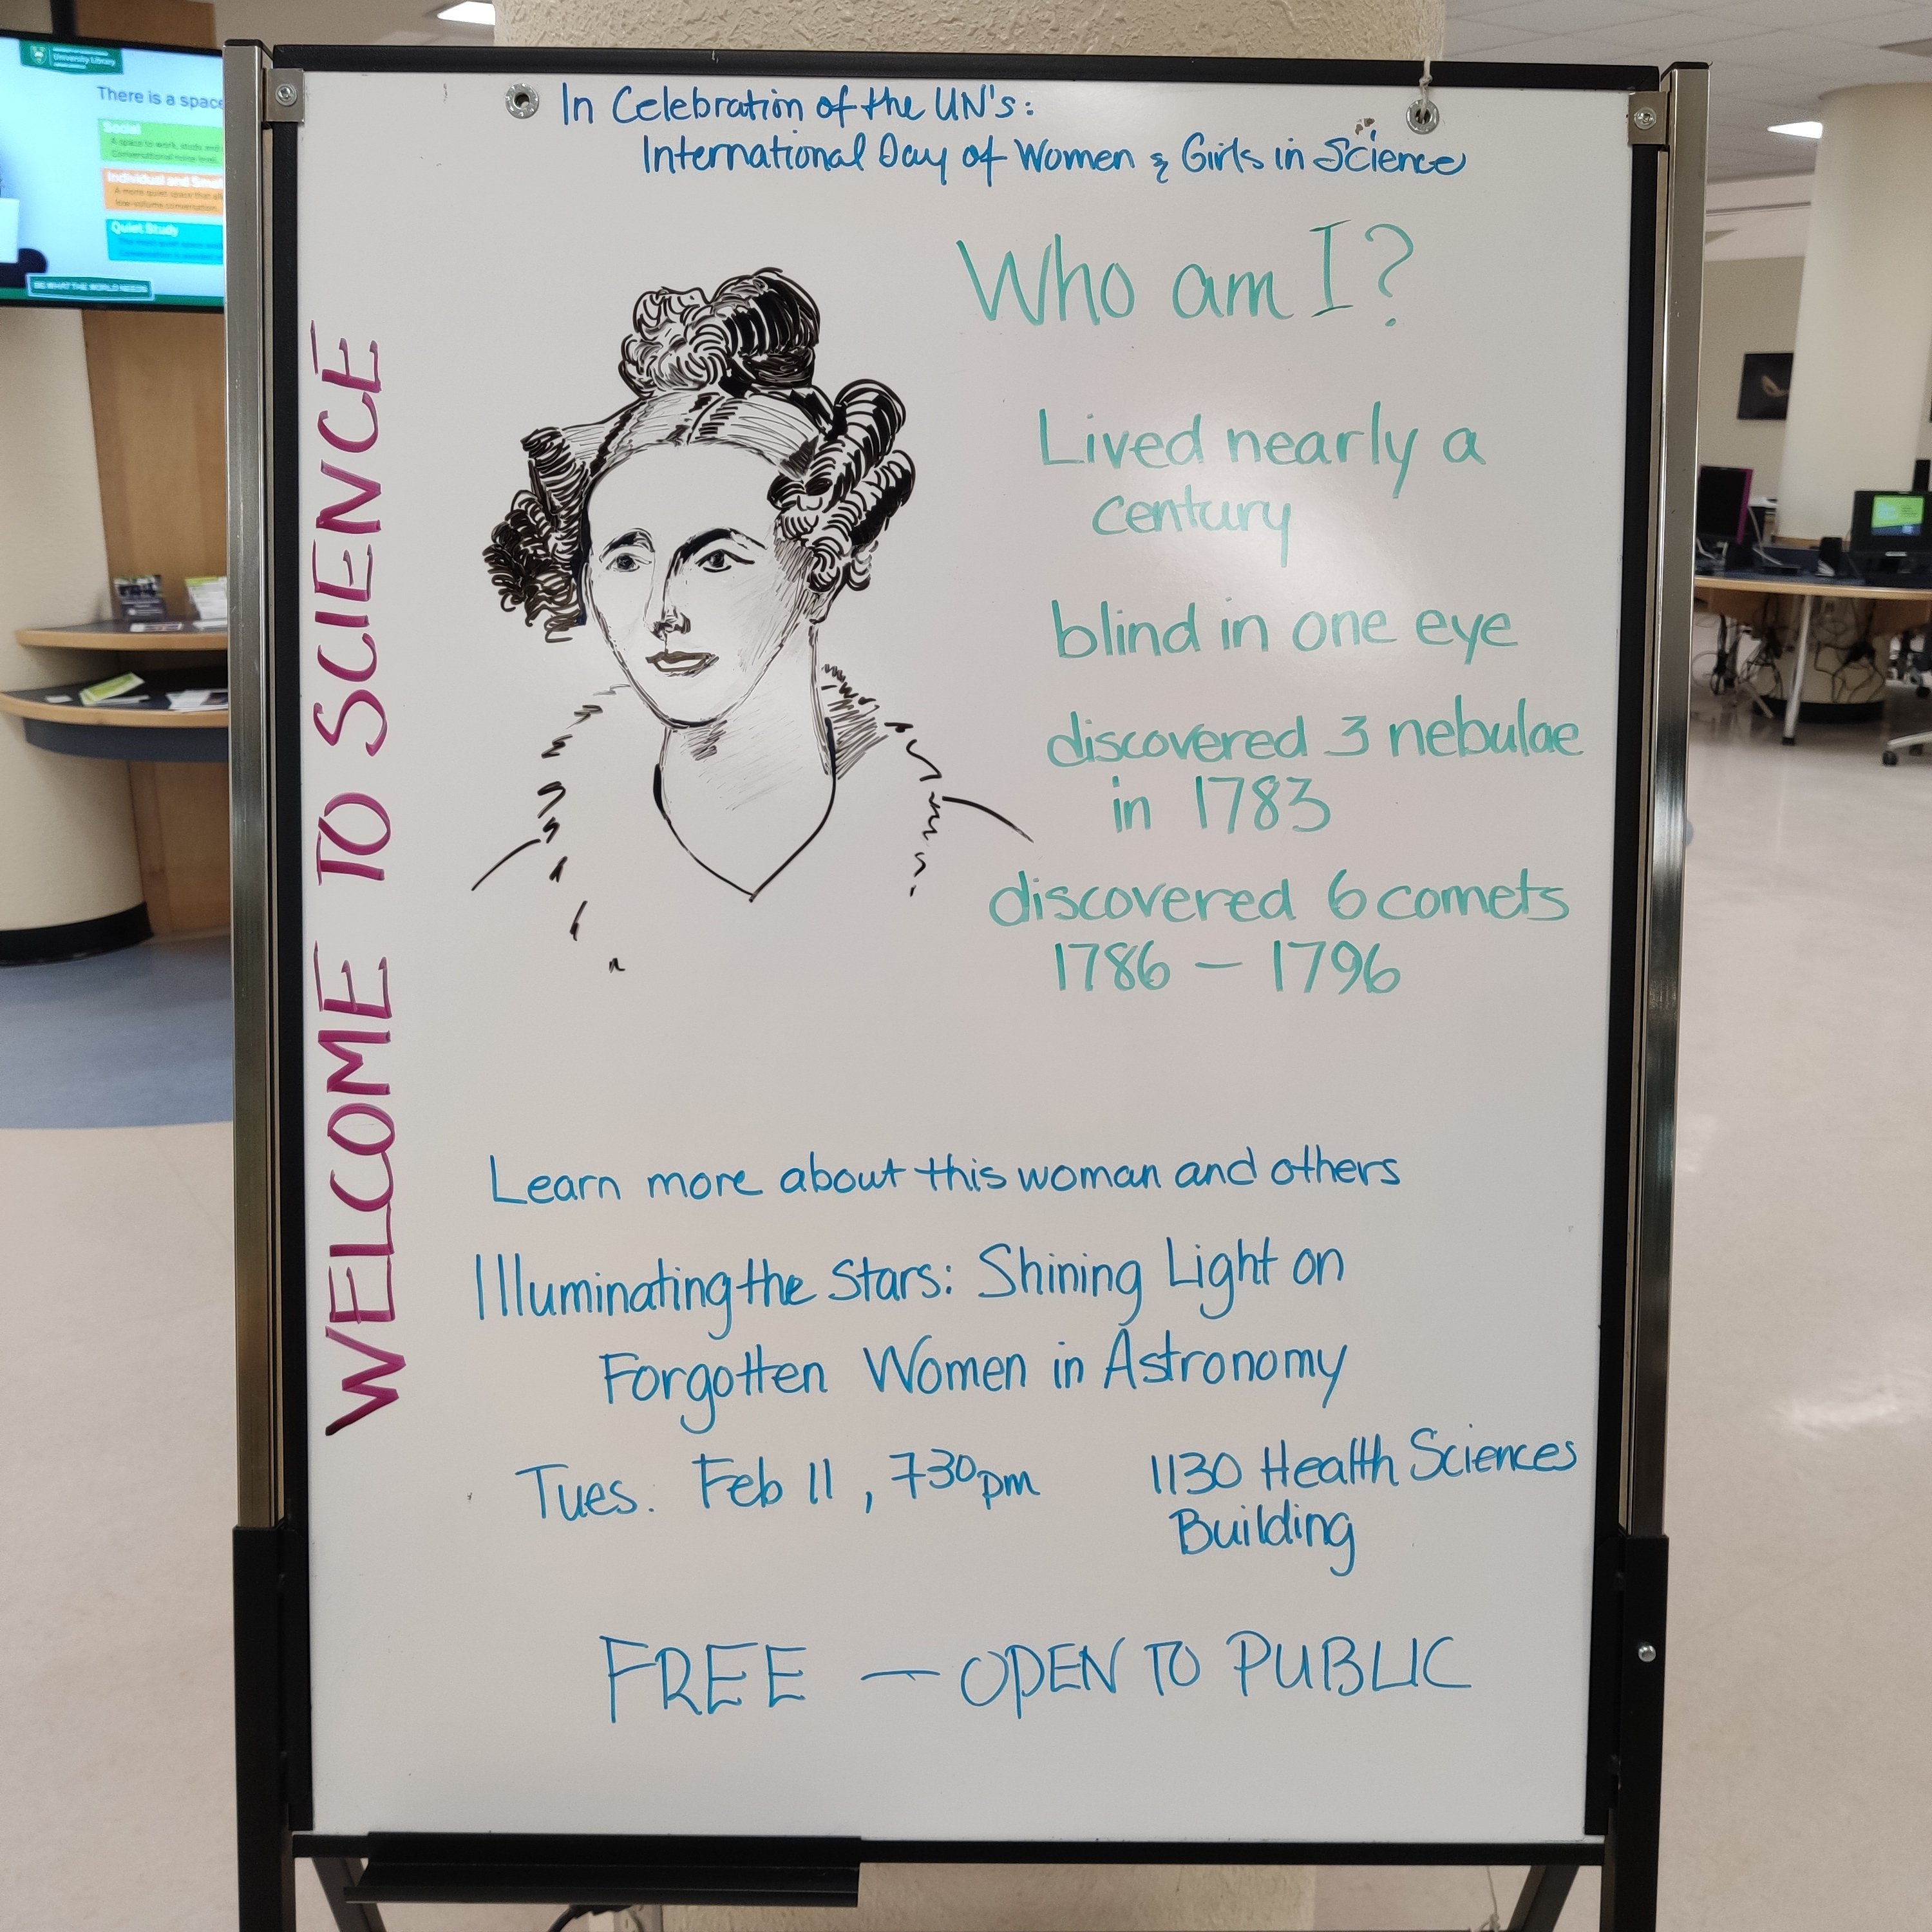 In Celebration of the UN's:
International Day of Women & Girls in Science
WELCOME TO SCIENCE
Who am I?
Lived nearly a
century
blind in one eye
discovered 3 nebulae
in 1783
discovered 6 comets
1786 — 1796
Learn more about this woman and others
Illuminating the Stars: Shining Light on
Forgotten Women in Astronomy
Tues. Feb 11, 730pm
1130 Health Sciences
Building
FREE — OPEN TO PUBLIC
University Library
There is a space
Social
A space to work, study and
Conversational noise level.
Individual and Small
A more quiet space that
low-volume conversation.
Quiet Study
BE WHAT THE WORLD NEEDS